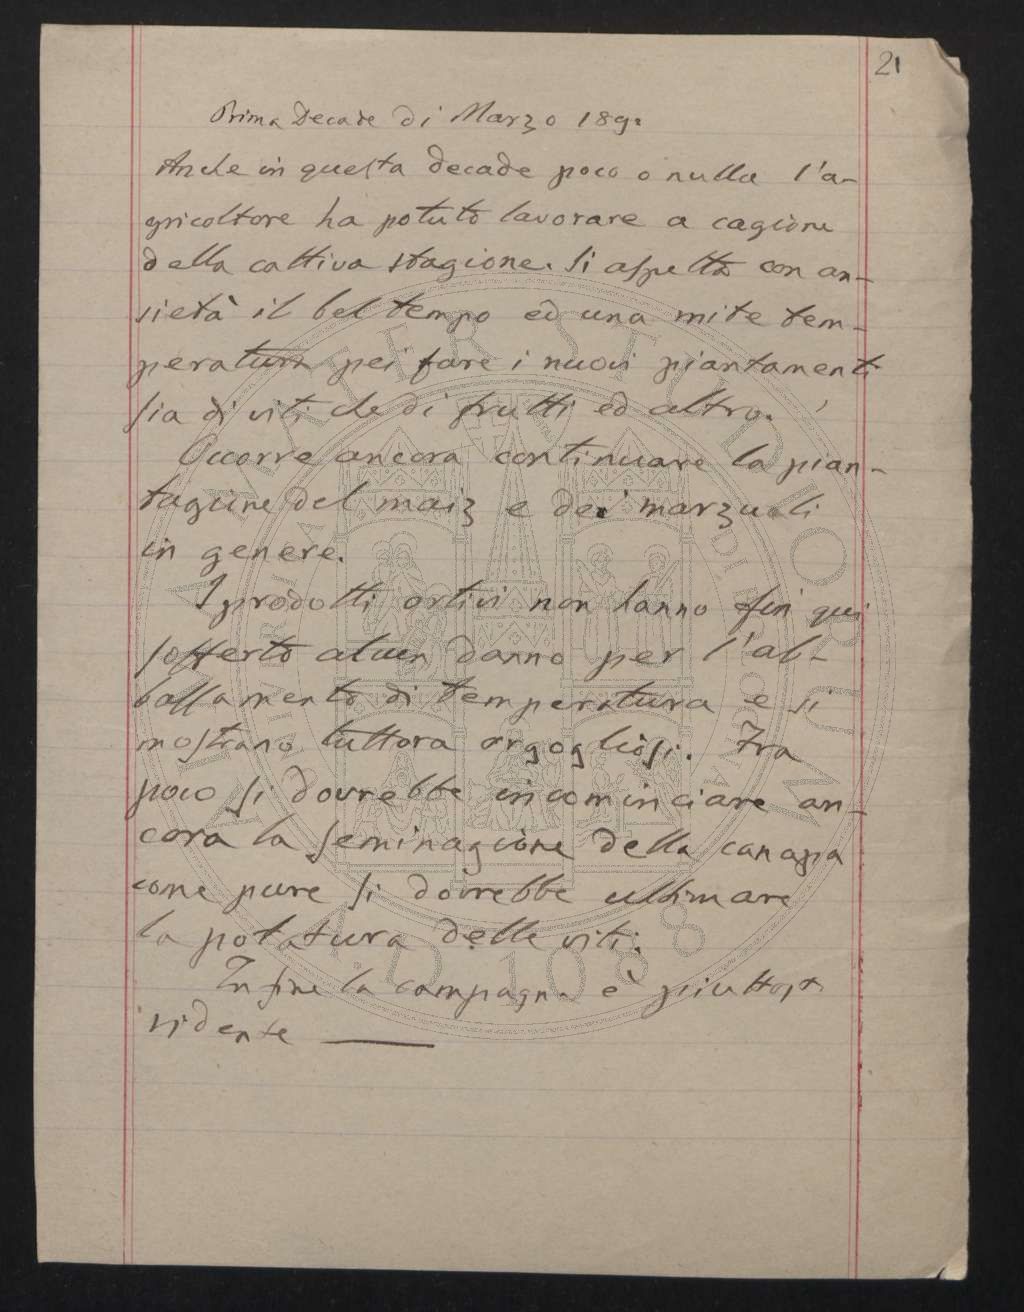 21
Prima Decade di Marzo 189
Anche in questa decade poco o nulla l'a-
gricoltore ha potuto lavorare a cagione
della cattiva stagione. Si aspetta con an-
sietà il bel tempo ed una mite tem-
peratura pei fare i nuovi piantamenti
sia di viti che di frutti ed altro.
Occorre ancora continuare la pian-
tagione del maiz e dei marzuoli
in genere.
I prodotti ortivi non hanno fin qui
sofferto alcun danno per l'ab-
bassamento di temperatura e si
mostrano tuttora orgogliosi. Fra
poco si dovrebbe incominciare an-
cora la seminagione della canapa
come pure si dovrebbe ultimare
la potatura delle viti.
In fine la campagna è piuttosto
ridente
ALMA MATER STUDIORUM
A.D. 1088